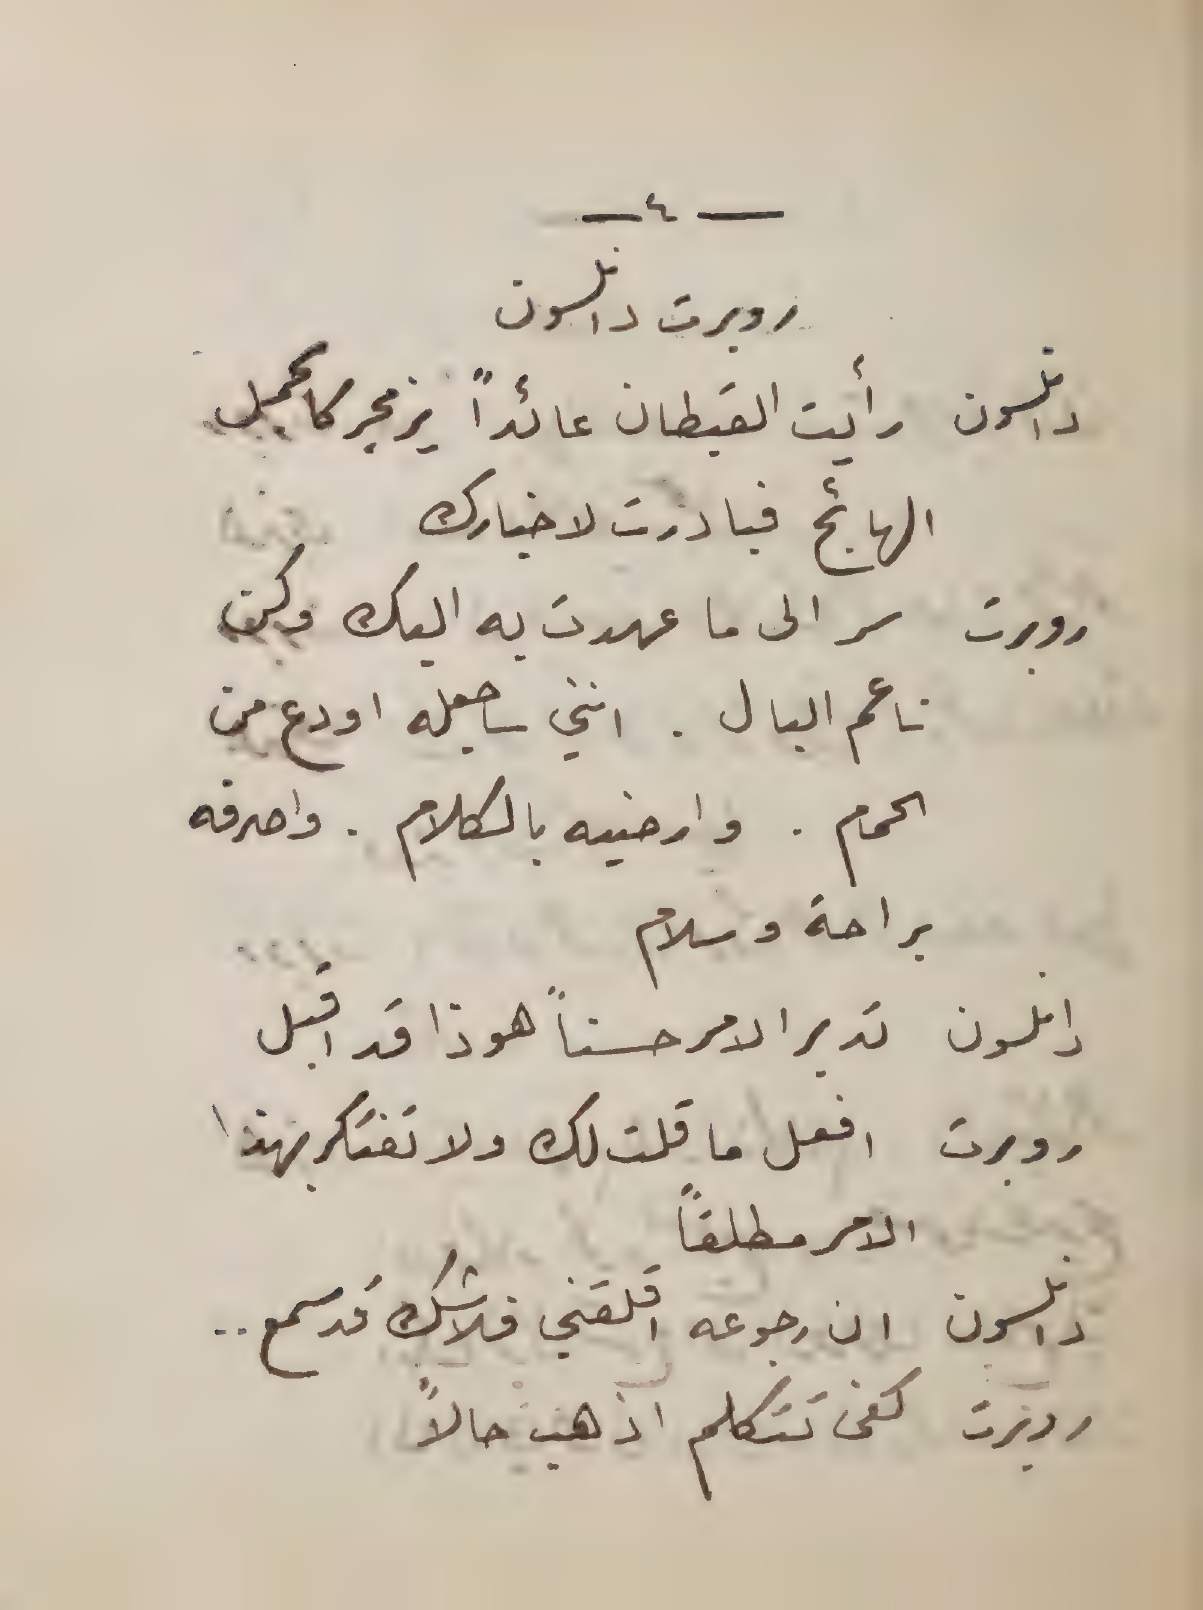 — ٤ —
روبرت دانلسون
دانلسون رأيت القبطان عائداً يزمجر كالجمل
الهائج فبادرت لاخبارك
روبرت سر الى ما عهدت به اليك وكن
ناعم البال . انني ساجعله اودع من
الحمام . وارضيه بالكلام . واصرفه
براحة وسلام
دانلسون تدبر الامر حسناً هوذا قد اقبل
روبرت افعل ما قلت لك ولا تفتكر بهذا
الامر مطلقاً
دانلسون ان رجوعه اقلقني فلا شك قد سمع ..
روبرت كفى تتكلم اذهب حالاً